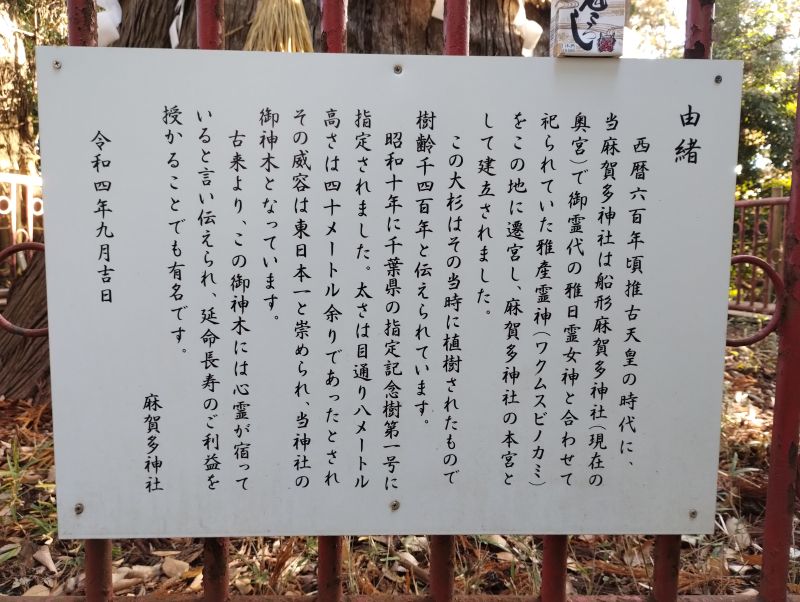 由緒
西暦六百年頃推古天皇の時代に、
当麻賀多神社は船形麻賀多神社(現在の
奥宮)で御霊代の雅日霊女神と合わせて
祀られていた雅産霊神(ワクムスビノカミ)
をこの地に遷宮し、麻賀多神社の本宮と
して建立されました。
この大杉はその当時に植樹されたもので
樹齢千四百年と伝えられています。
昭和十年に千葉県の指定記念樹第一号に
指定されました。太さは目通り八メートル
高さは四十メートル余りであったとされ
その威容は東日本一と崇められ、当神社の
御神木となっています。
古来より、この御神木には心霊が宿って
いると言い伝えられ、延命長寿のご利益を
授かることでも有名です。
麻賀多神社
令和四年九月吉日